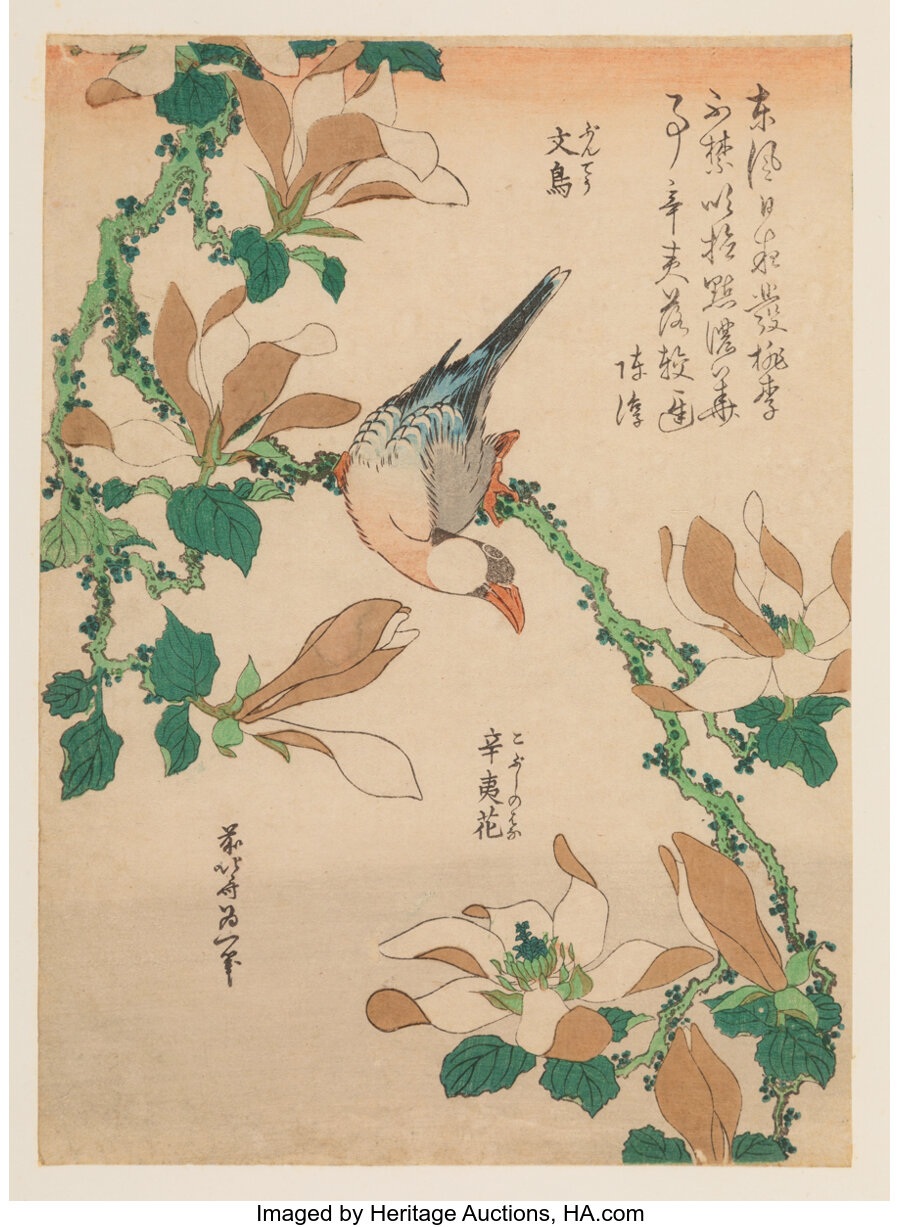 東風日夜發桃李
不禁吹檢點濃華
事辛夷落較遲
陳淳
ぶんてう
文鳥
こぶしのはな
辛夷花
前北斎為一筆
Imaged by Heritage Auctions, HA.com